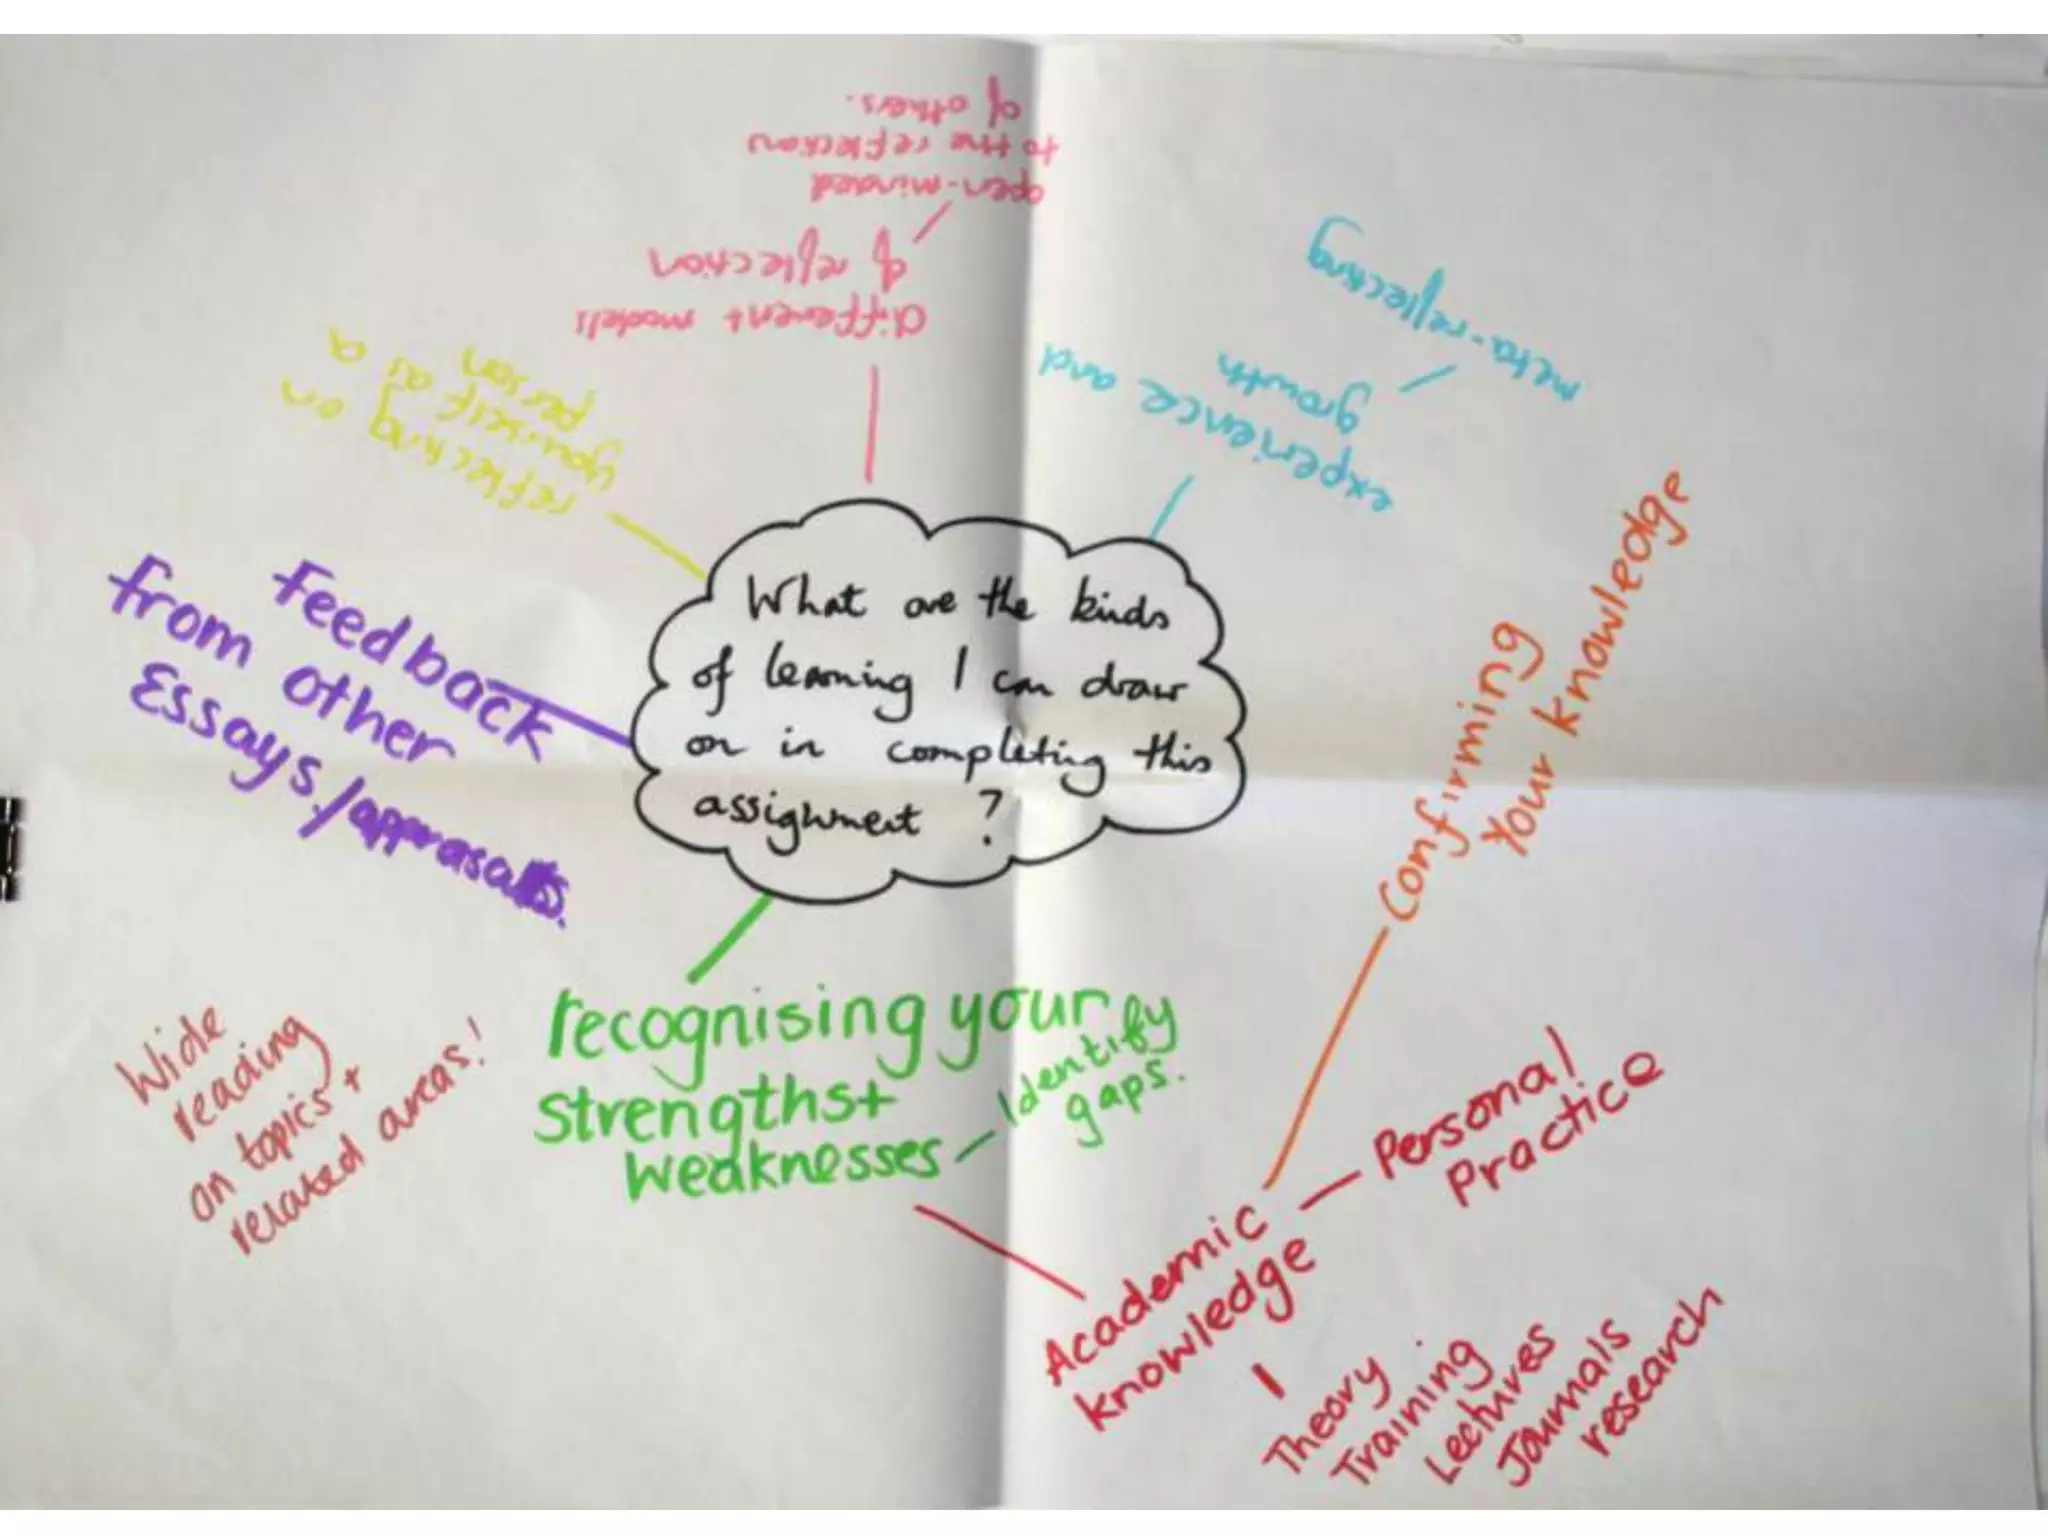 What are the kinds
of learning I can draw
on in completing this
assignment ?
different models
of reflection
open-minded
to the reflections
of others.
experience and
growth
meta-reflecting
reflecting on
yourself as a
person
Feedback
from other
Essays/apprasals.
recognising your
strengths+
weaknesses
Identify
gaps.
Wide
reading
on topics +
related areas!
Academic
knowledge
Confirming
Your knowledge
Personal
Practice
Theory
Training
Lectures
Journals
research